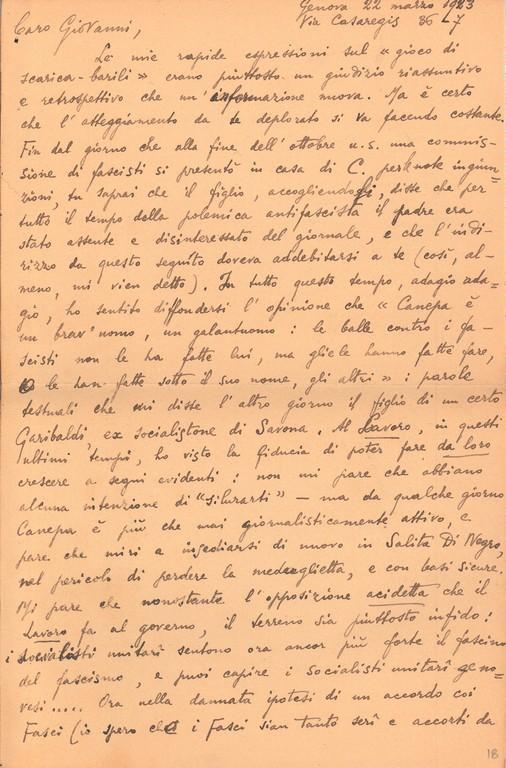 Genova 22 marzo 1923
Via Casaregis 36 7
Caro Giovanni,
Le mie rapide espressioni sul « gioco di
scarica-barili » erano piuttosto un giudizio riassuntivo
e retrospettivo che un'informazione nuova. Ma è certo
che l'atteggiamento da te deplorato si va facendo costante.
Fin dal giorno che alla fine dell'ottobre u.s. una commis-
sione di fascisti si presentò in casa di C. per note ingiun=
zioni, tu saprai che il figlio, accogliendogli, disse che per
tutto il tempo della polemica antifascista il padre era
stato assente e disinteressato del giornale, e che l'indi-
rizzo da questo seguito doveva addebitarsi a te (così, al-
meno, mi vien detto). In tutto questo tempo, adagio ada-
gio, ho sentito diffondersi l'opinione che « Canepa è
un brav'uomo, un galantuomo : le balle contro i fa-
scisti non le ha fatte lui, ma gliele hanno fatte fare,
o le han fatte sotto il suo nome, gli altri » : parole
testuali che mi disse l'altro giorno il figlio di un certo
Garibaldi, ex socialistone di Savona. Al Lavoro, in questi
ultimi tempi, ho visto la fiducia di poter fare da loro
crescere a segni evidenti : non mi pare che abbiano
alcuna intenzione di "silurarti" — ma da qualche giorno
Canepa è più che mai giornalisticamente attivo, e
pare che miri a insediarsi di nuovo in Salita Di Negro,
nel pericolo di perdere la medaglietta, e con basi sicure.
Mi pare che nonostante l'opposizione acidetta che il
Lavoro fa al governo, il terreno sia piuttosto infido :
i socialisti unitarî sentono ora ancor più forte il fascino
del fascismo, e puoi capire i socialisti unitari geno=
vesi..... Ora nella dannata ipotesi di un accordo coi
Fasci (io spero che i Fasci sian tanto serî e accorti da
18